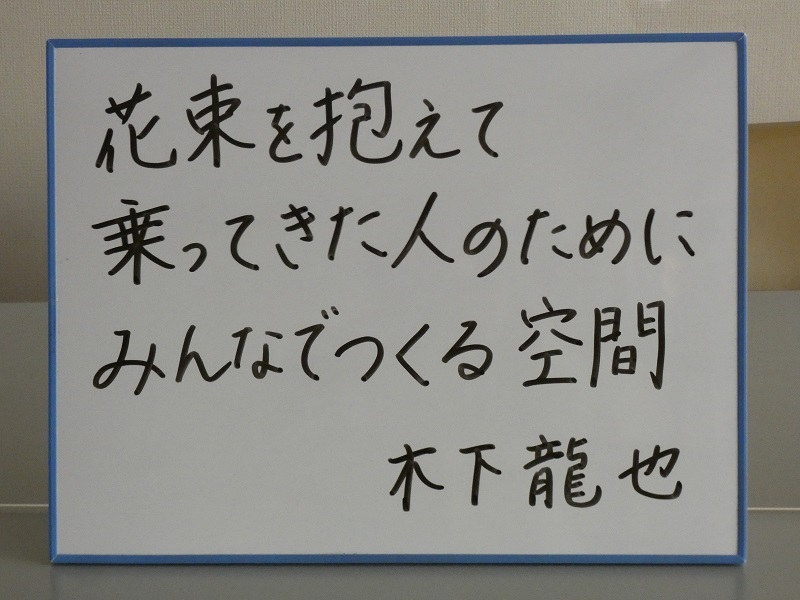 花束を抱えて
乗ってきた人のために
みんなでつくる空間
木下龍也